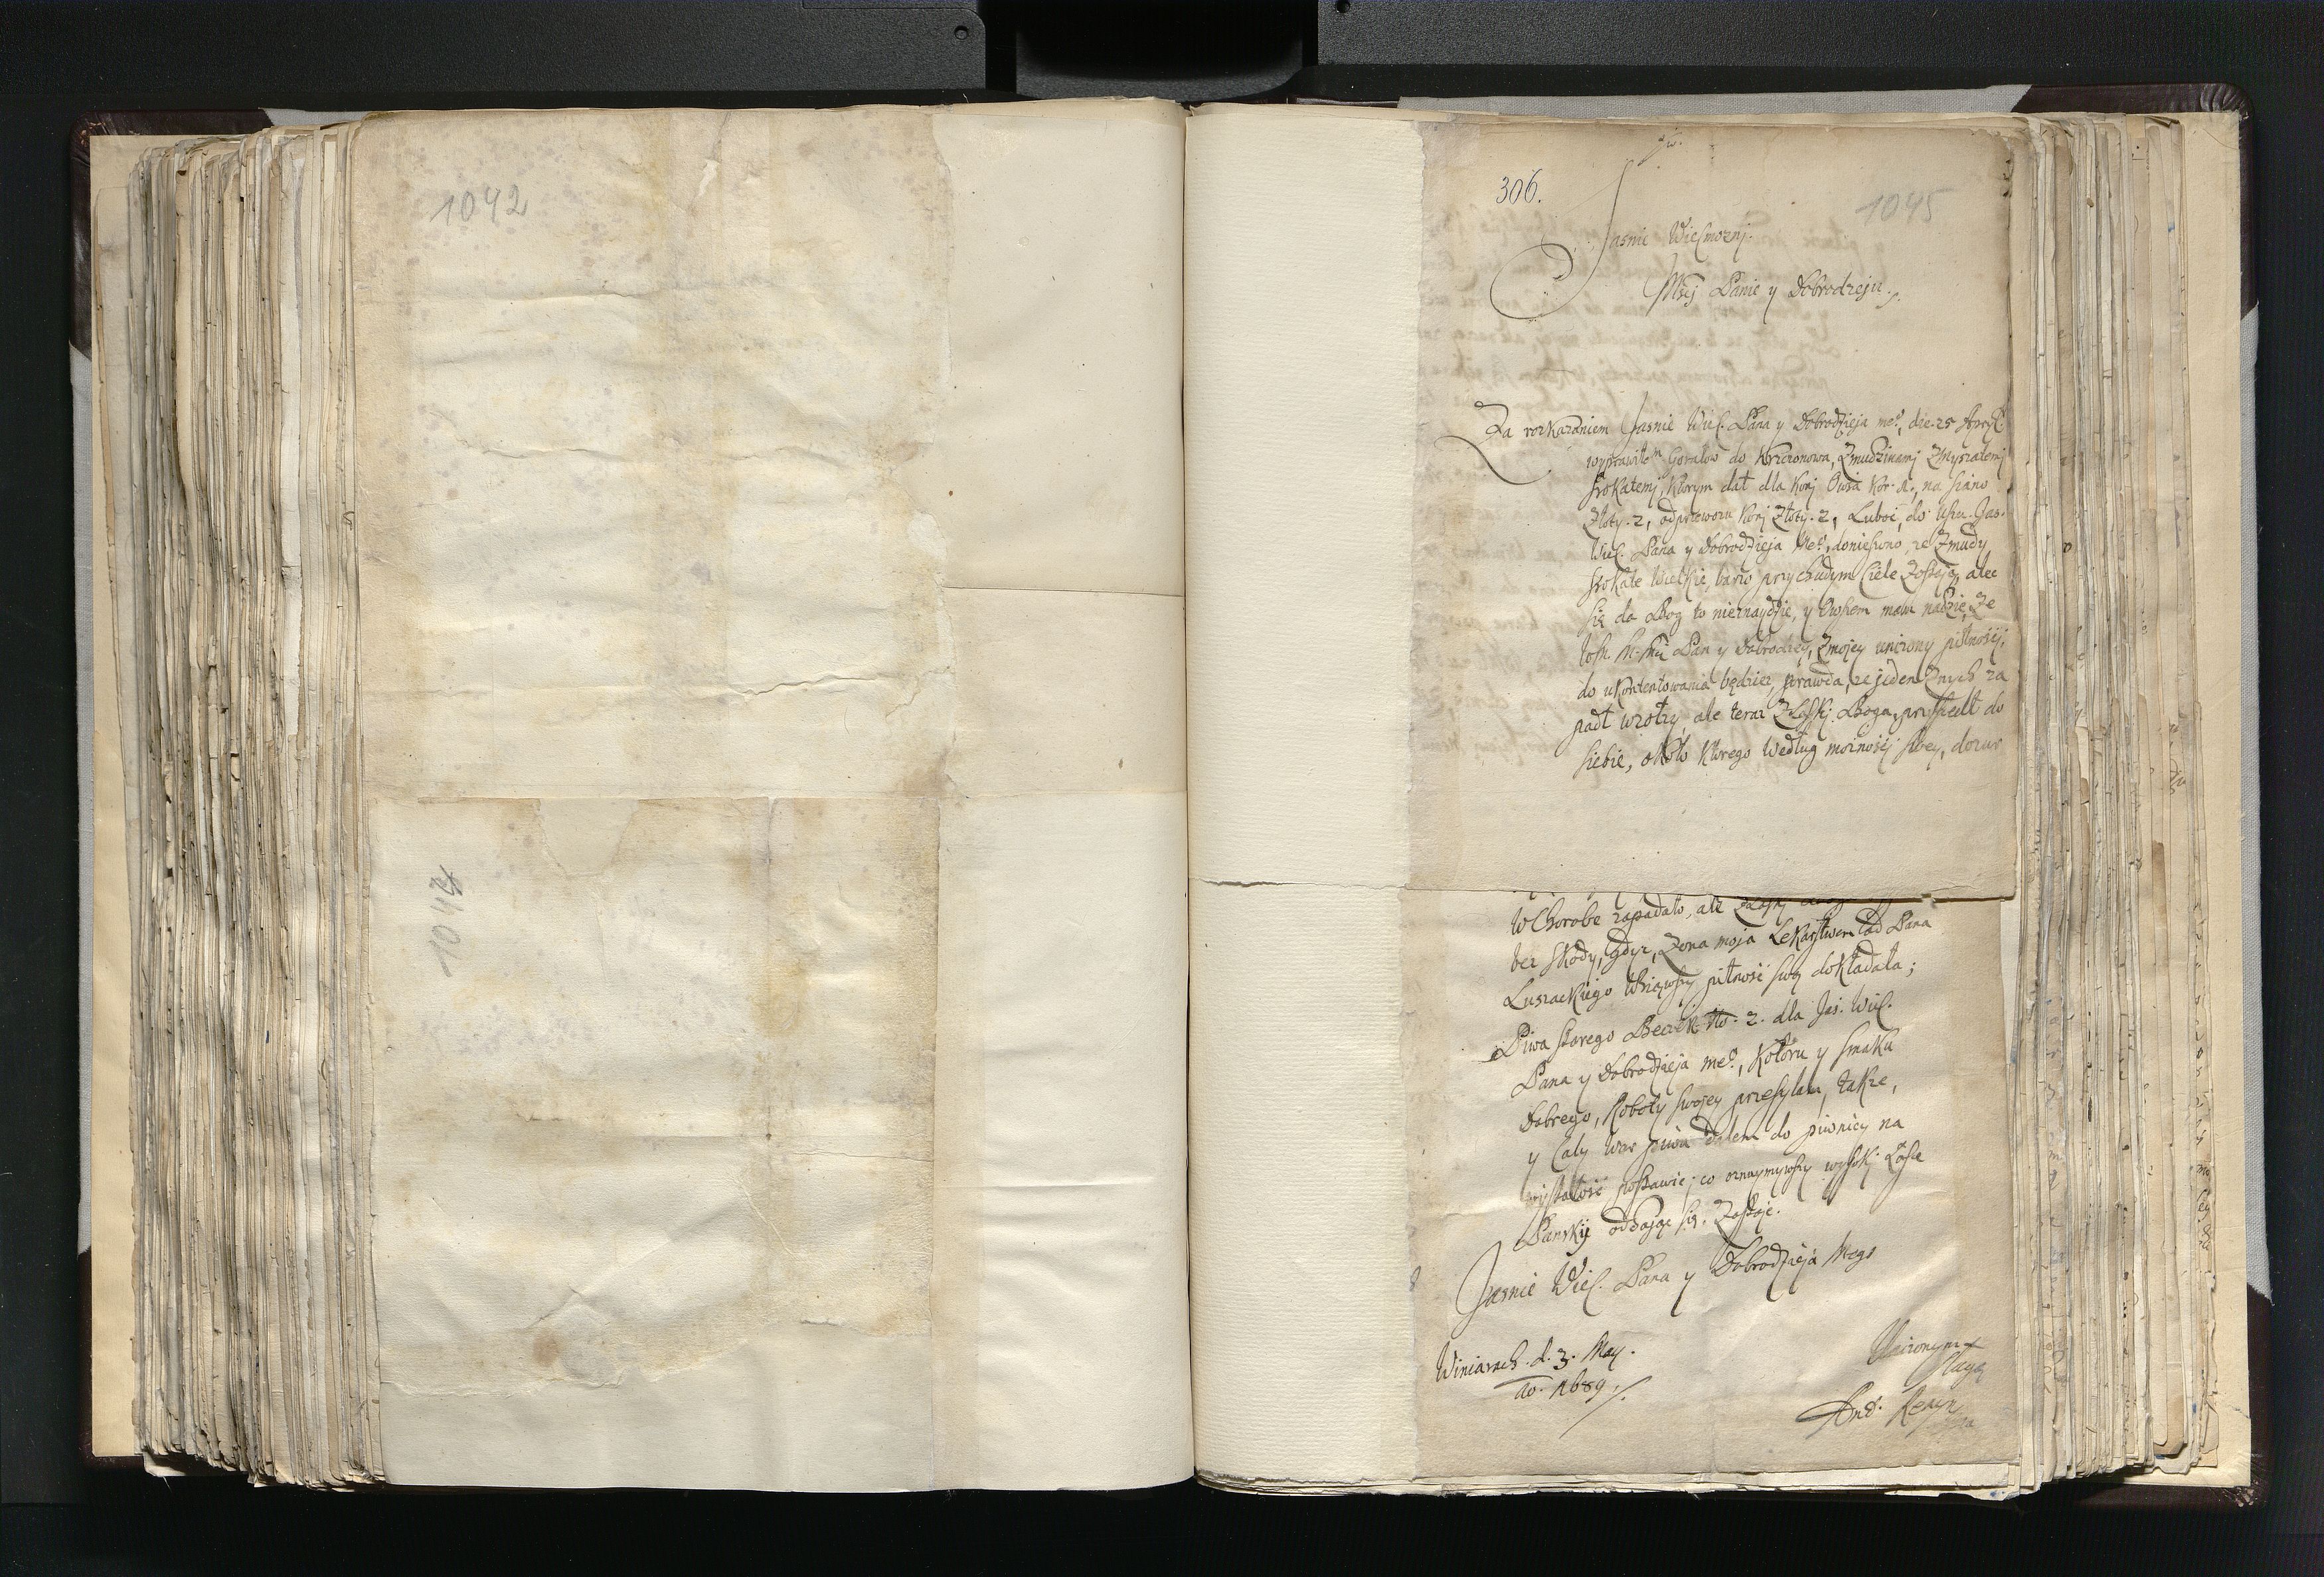 1042
1044
306.
1045
Jasnie Wielmozny.
Mscj Panie y Dobrodzieju.
Za rozkazaniem Jasnie Wiel. Pana y Dobrodzieja meo, die 25 April
wyprawiłem Goralow do Krzczonowa, Zmudzinami Zmyszatemi
srokatemi, ktorym dał dla koni Owsa kor. 1, na siano
Złoty. 2, od przewozu koni Złoty. 2, Luboć, do Uszu Jas.
Wiel. Pana y Dobrodzieja Meo, doniesiono, ze Zmudy
srokate Wielkie barzo przychudym Ciele Zostają, alec
się da Bog to nieznaydzie, y Owszem mam nadzie, Ze
Pan y Dobrodzey, Zmojey unizony pilnosci,
do ukontentowania będziez, prawda, ze jeden Znych za
padł wzołzy ale teraz Z Łaski Boga, przyszedł do
siebie, około ktorego Według moznosci swey, dozur
W Chorobe zapadało, ale
bez skody, gdyz, Zona moja Lekarstwem od Pana
Luszackiego Wziąwszy pilnosć swą dokładała;
Piwa starego Beczek No. 2. dla Jas. Wiel.
Pana y Dobrodzieja meo, Koloru y smaku
Dobrego, Roboty swojey przesyłam, także,
y Cały War piwa dałem do piwnicy na
wystałosć postawic; co oznaymiwszy wysoki Łasce
Panskiy oddając się. Zostaje.
Jasnie Wiel. Pana y Dobrodzieja Mego
Winiarach. d. 3. May.
Ao. 1689
Unizonym
sługą
And.